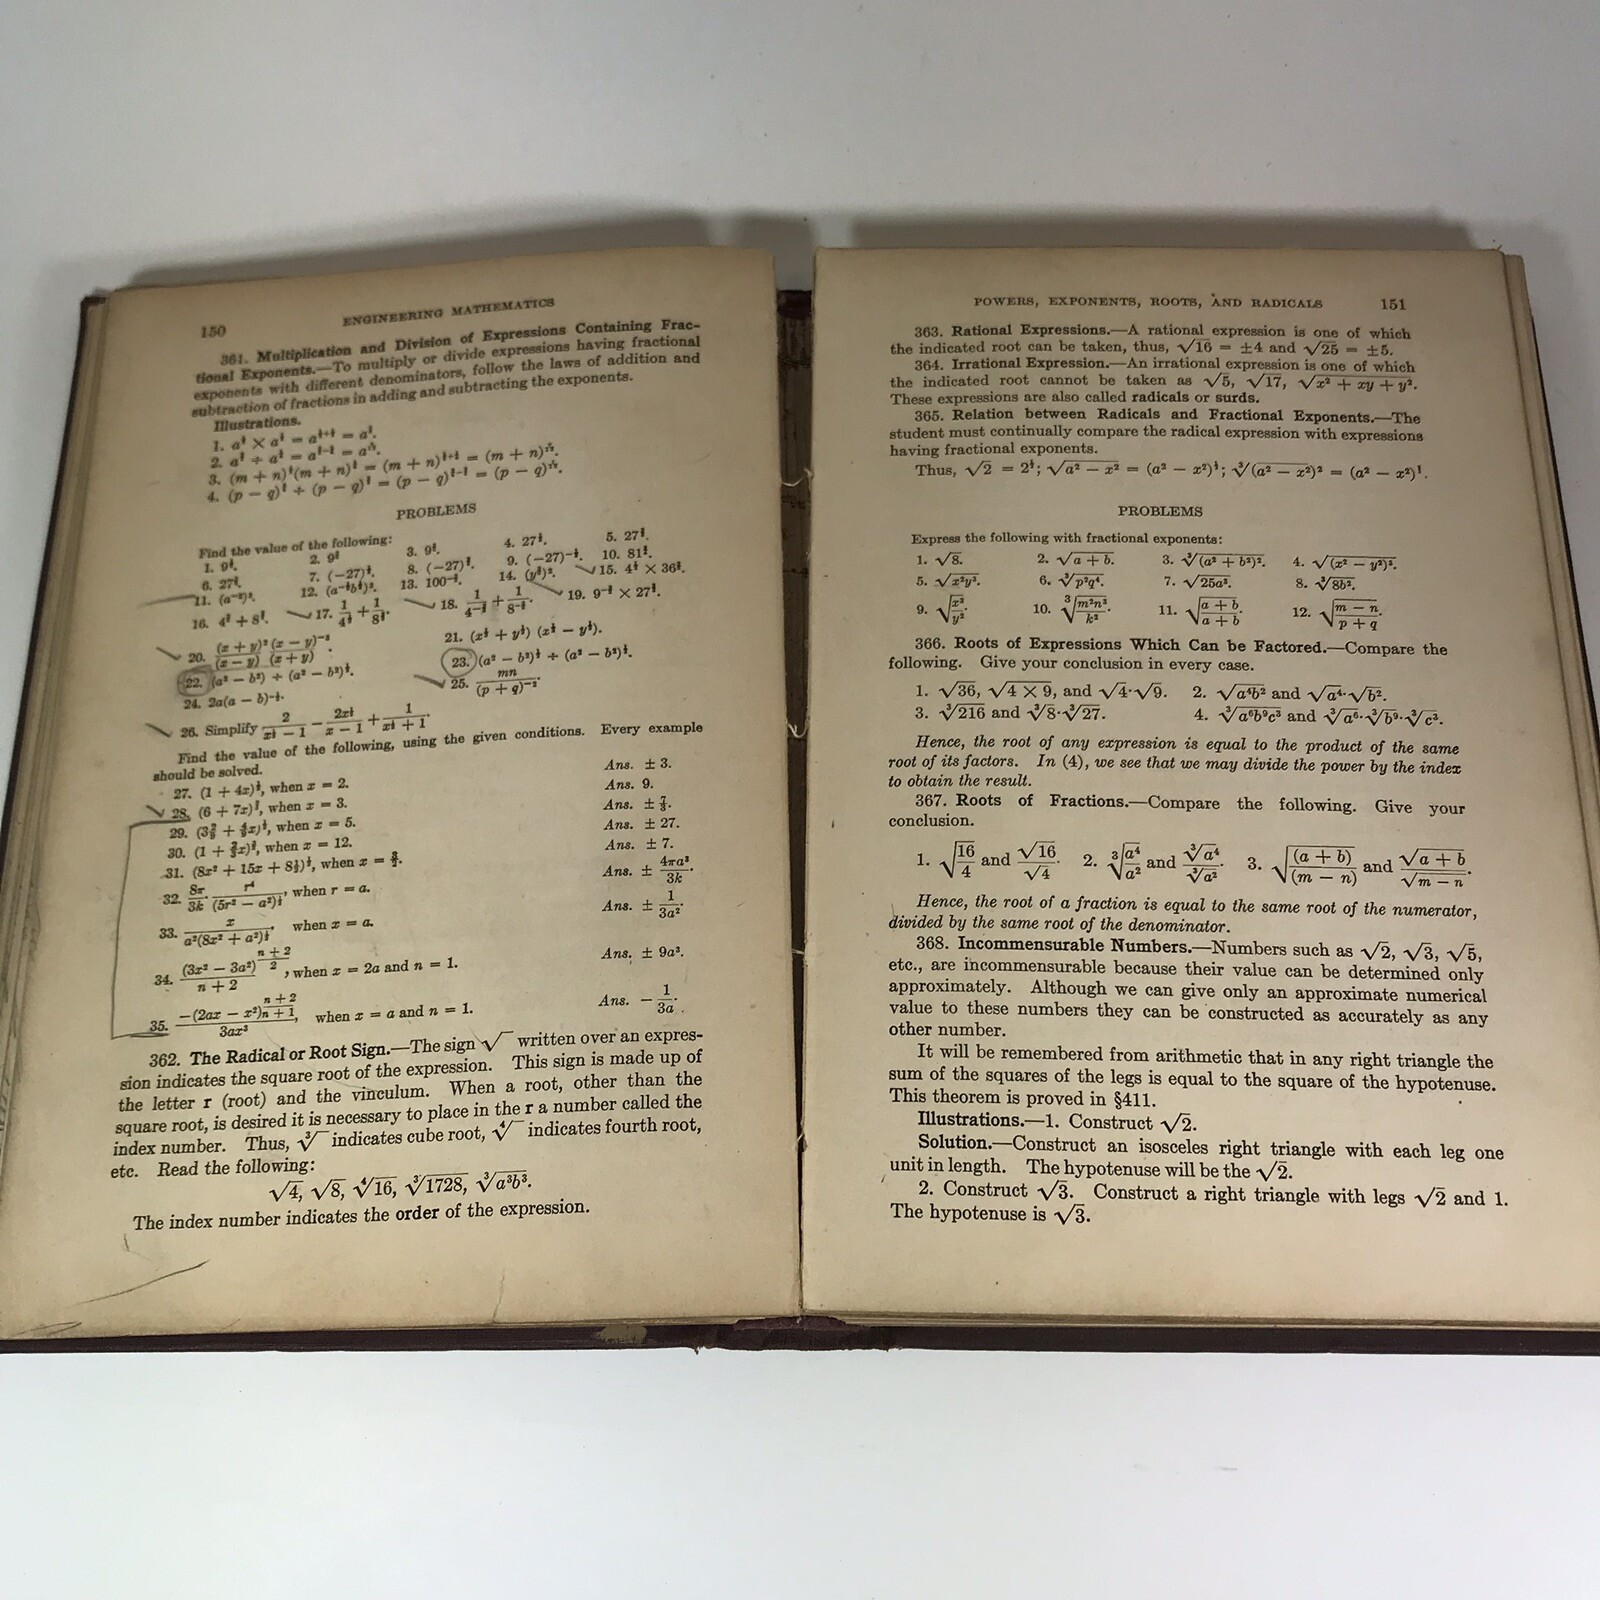 150
ENGINEERING MATHEMATICS
361. Multiplication and Division of Expressions Containing Frac-
tional Exponents.—To multiply or divide expressions having fractional
exponents with different denominators, follow the laws of addition and
subtraction of fractions in adding and subtracting the exponents.
Illustrations.
PROBLEMS
Find the value of the following:
26. Simplify
Find the value of the following, using the given conditions. Every example
should be solved.
27. (1 + 4x) , when x = 2. Ans. ± 3.
28. (6 + 7x) , when x = 3. Ans. 9.
29. when x = 5. Ans. ±
30. when x = 12. Ans. ± 27.
31. when x = Ans. ± 7.
32. 8π/3k · when r = a. Ans. ± 4πa³/3k.
33. when x = a. Ans. ± 1/3a².
34. (3x² − 3a²)^((n + 2)/2)/(n + 2), when x = 2a and n = 1. Ans. ± 9a³.
35. when x = a and n = 1. Ans. − 1/3a.
362. The Radical or Root Sign.—The sign √ written over an expres-
sion indicates the square root of the expression. This sign is made up of
the letter r (root) and the vinculum. When a root, other than the
square root, is desired it is necessary to place in the r a number called the
index number. Thus, ∛ indicates cube root, ∜ indicates fourth root,
etc. Read the following:
√4, √8, ∜16, ∛1728, ∛a³b³.
The index number indicates the order of the expression.
POWERS, EXPONENTS, ROOTS, AND RADICALS 151
363. Rational Expressions.—A rational expression is one of which
the indicated root can be taken, thus, √16 = ±4 and √25 = ±5.
364. Irrational Expression.—An irrational expression is one of which
the indicated root cannot be taken as √5, √17, √(x² + xy + y²).
These expressions are also called radicals or surds.
365. Relation between Radicals and Fractional Exponents.—The
student must continually compare the radical expression with expressions
having fractional exponents.
Thus, √2 =
PROBLEMS
Express the following with fractional exponents:
1. √8. 2. √(a + b). 3. ∛(a² + b²)². 4. √(x² − y²)³.
5. √x²y³. 6. ∛p²q⁴. 7. √25a³. 8. ∛8b².
9. √(x³/y²). 10. ∛(m²n³/k²). 11. √((a + b)/(a + b)). 12. √((m − n)/(p + q)).
366. Roots of Expressions Which Can be Factored.—Compare the
following. Give your conclusion in every case.
1. √36, √(4 × 9), and √4·√9. 2. √a⁴b² and √a⁴·√b².
3. ∛216 and ∛8·∛27. 4. ∛a⁶b⁹c³ and ∛a⁶·∛b⁹·∛c³.
Hence, the root of any expression is equal to the product of the same
root of its factors. In (4), we see that we may divide the power by the index
to obtain the result.
367. Roots of Fractions.—Compare the following. Give your
conclusion.
1. √(16/4) and √16/√4. 2. ∛(a⁴/a²) and ∛a⁴/∛a². 3. √((a + b)/(m − n)) and √(a + b)/√(m − n).
Hence, the root of a fraction is equal to the same root of the numerator,
divided by the same root of the denominator.
368. Incommensurable Numbers.—Numbers such as √2, √3, √5,
etc., are incommensurable because their value can be determined only
approximately. Although we can give only an approximate numerical
value to these numbers they can be constructed as accurately as any
other number.
It will be remembered from arithmetic that in any right triangle the
sum of the squares of the legs is equal to the square of the hypotenuse.
This theorem is proved in §411.
Illustrations.—1. Construct √2.
Solution.—Construct an isosceles right triangle with each leg one
unit in length. The hypotenuse will be the √2.
2. Construct √3. Construct a right triangle with legs √2 and 1.
The hypotenuse is √3.